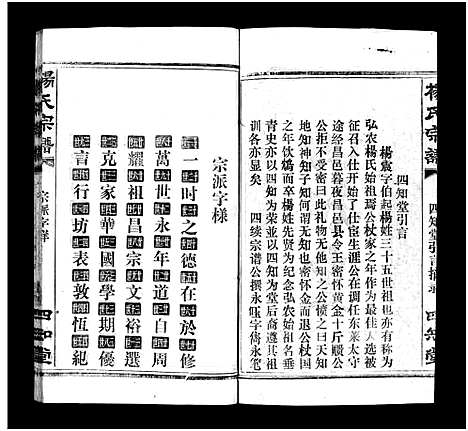 楊氏宗譜
四知堂引言
四知堂
四知堂引言
楊震字伯起楊姓三十五世祖也亦有称为
弘农杨氏始祖焉公杖家之年作为最佳人选被
征召入仕开始了仕宦生涯公在调任东莱太守
途经昌邑暮夜昌邑县令王密怀黄金十斤赠公
公拒不受密曰此礼物无他知之公愤之曰天知
神知子知我知何谓无知密愧而退公杖国
之年饮鸩而卒楊姓先贤为纪念弘农始祖名垂
青史亦以四知为荣並以四知为堂后裔遵其祖
训各亦显矣
四续宗谱公撰永
宗派字样
一時之德在於修
萬世永年道自周
耀祖昌宗文裕選
克家華國學期優
言行坊表敦恆紀
楊氏宗譜
宗派字样
四知堂